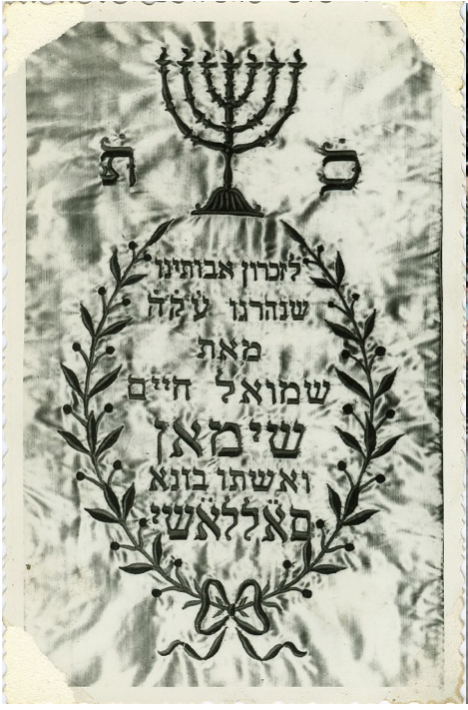 ס ת
לזכרון אבותינו
שנהרגו עקה
מאת
שמואל חיים
שימאן
ואשתו בונא
סאללאשי